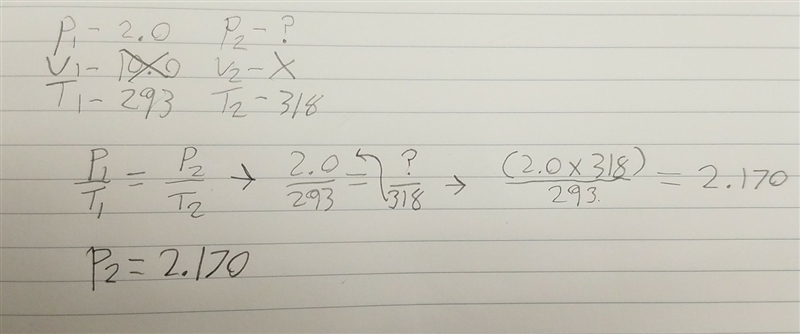 P₁ - 2.0 P₂ - ?
V₁ - 10.0 V₂ - X
T₁ - 293 T₂ - 318
P₁/T₁ = P₂/T₂ → 2.0/293 = ?/318 → (2.0 x 318)/293. = 2.170
P₂ = 2.170